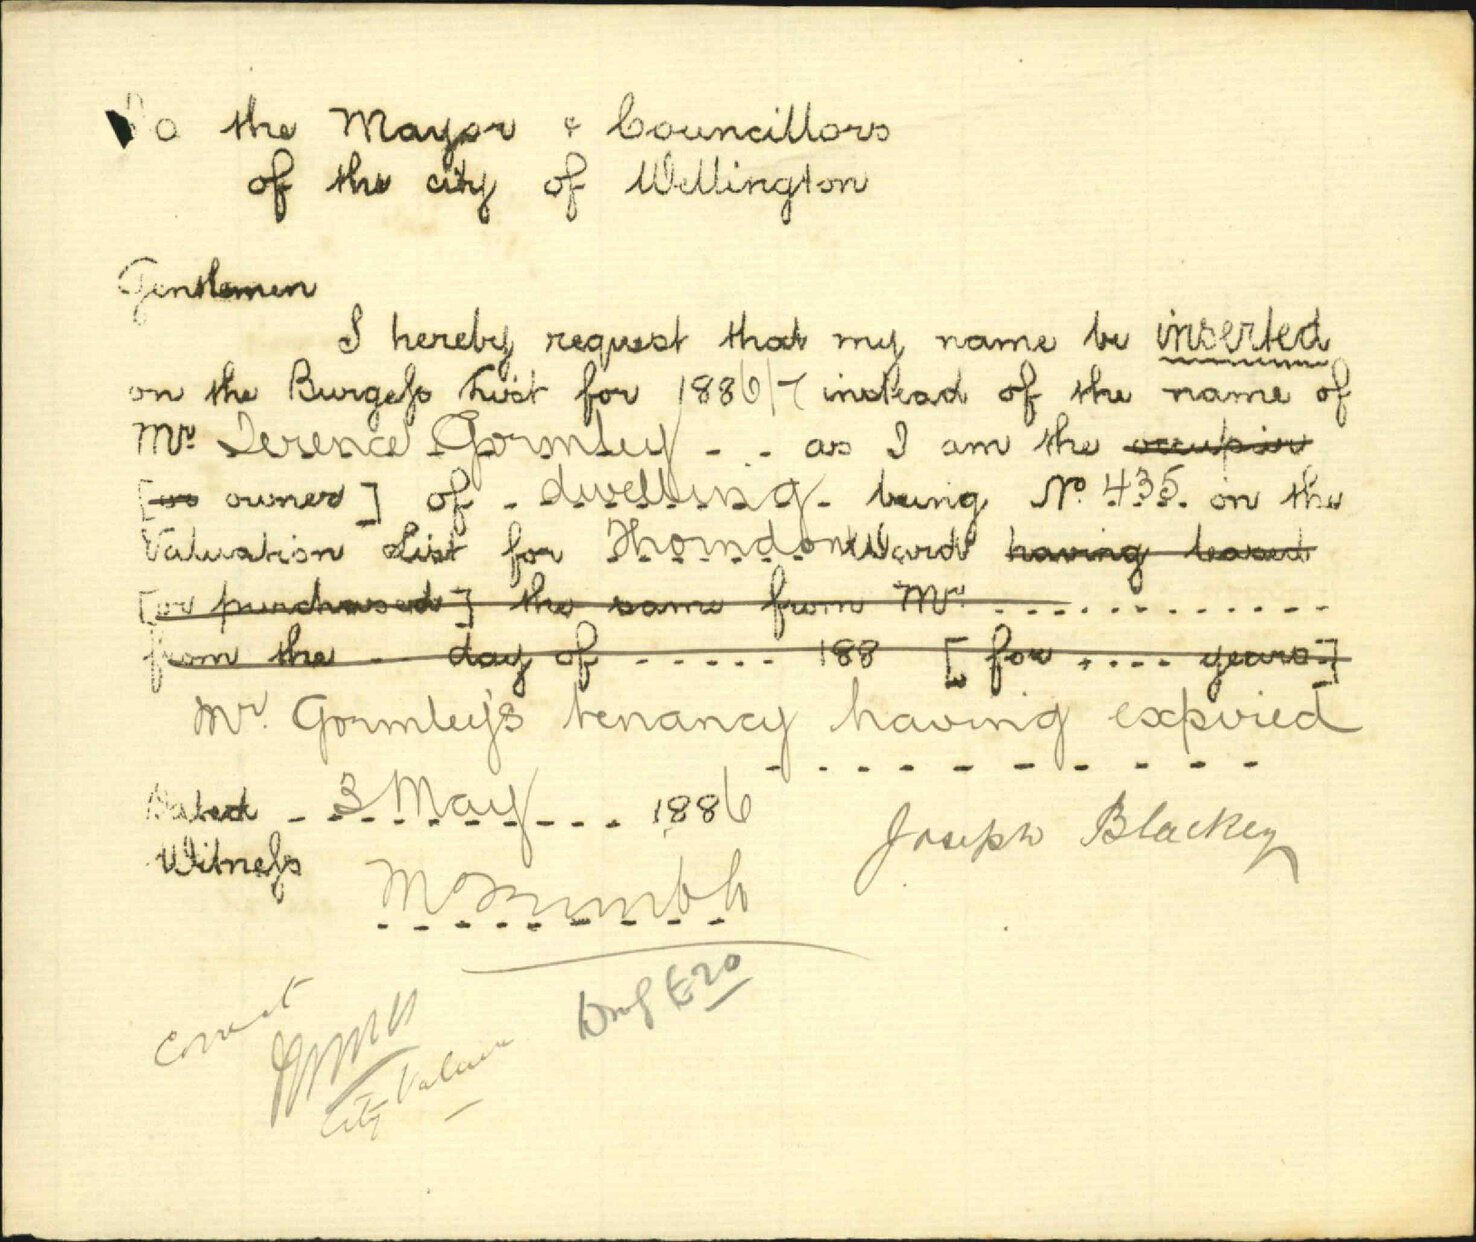 To the Mayor & Councillors
of the city of Wellington
Gentlemen
I hereby request that my name be inserted
on the Burgess List for 1886/7 instead of the name of
Mr. Terence Gormley - - as I am the occupier
[or owner] of - dwelling - being No. 435 on the
Valuation List for Thorndon Ward having leased
[or purchased] the same from Mr. . . . . . . . . . . . .
from the - - day of - - - - - 188 [for - - - - years]
Mr. Gormley's tenancy having expired
Dated - 3 May - - - 1886
Joseph Blackey
Witness
correct
City Valuer